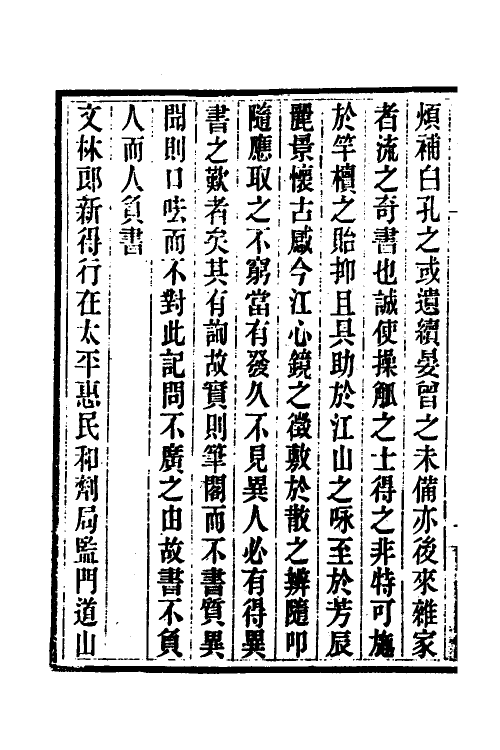 煩補白孔之或遺續晏曾之未備亦後來雜家
者流之奇書也誠使操觚之士得之非特可施
於竿櫝之貽抑且具助於江山之咏至於芳辰
麗景懷古感今江心鏡之徵敷於散之辨隨叩
隨應取之不窮當有發久不見異人必有得異
書之歎者矣其有詢故實則筆閣而不書質異
聞則口呿而不對此記問不廣之由故書不負
人而人負書
文林郎新得行在太平惠民和劑局監門道山